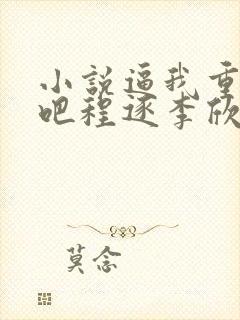 小説逼我重
吧程逐李欣
莫念